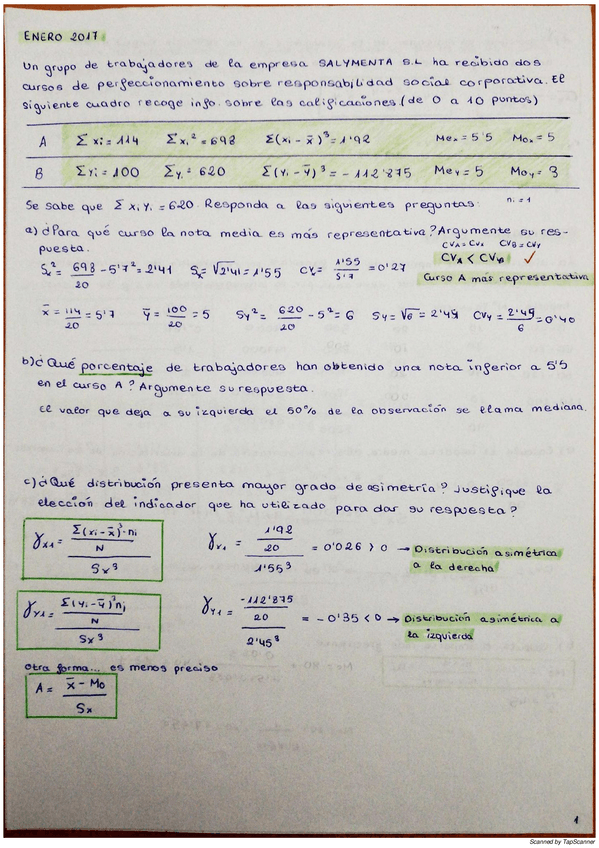 ENERO 2017
Un grupo de trabajadores de la empresa SALYMENTA S.L ha recibido dos
cursos de perfeccionamiento sobre responsabilidad social corporativa. El
siguiente cuadro recoge info. sobre las calificaciones (de 0 a 10 puntos)
A Σxi = 114 Σxi² = 698 Σ(xi - x̄)³ = 1'92 Mex = 5'5 Mox = 5
B Σyi = 100 Σyi² = 620 Σ(yi - ȳ)³ = -112'875 Mey = 5 Moy = 3
Se sabe que Σxiyi = 620. Responda a las siguientes preguntas: ni = 1
a) ¿Para qué curso la nota media es más representativa? Argumente su res-
puesta. CVA = CVx CVB = CVy
CVA < CVB ✓
Curso A más representativa
Sx² = 698/20 - 5'7² = 2'41 Sx = √2'41 = 1'55 CVx = 1'55/5'7 = 0'27
x̄ = 114/20 = 5'7 ȳ = 100/20 = 5 Sy² = 620/20 - 5² = 6 Sy = √6 = 2'49 CVy = 2'49/6 = 0'40
b) ¿Qué porcentaje de trabajadores han obtenido una nota inferior a 5'5
en el curso A? Argumente su respuesta.
El valor que deja a su izquierda el 50% de la observación se llama mediana.
c) ¿Qué distribución presenta mayor grado de asimetría? Justifique la
elección del indicador que ha utilizado para dar su respuesta?
γx1 = (Σ(xi - x̄)³·ni / N) / Sx³ γx1 = (1'92 / 20) / 1'55³ = 0'026 > 0 → Distribución asimétrica
a la derecha
γy1 = (Σ(yi - ȳ)³ni / N) / Sx³ γy1 = (-112'875 / 20) / 2'45³ = -0'35 < 0 → Distribución asimétrica a
la izquierda
Otra forma... es menos preciso
A = (x̄ - Mo) / Sx
1
Scanned by TapScanner